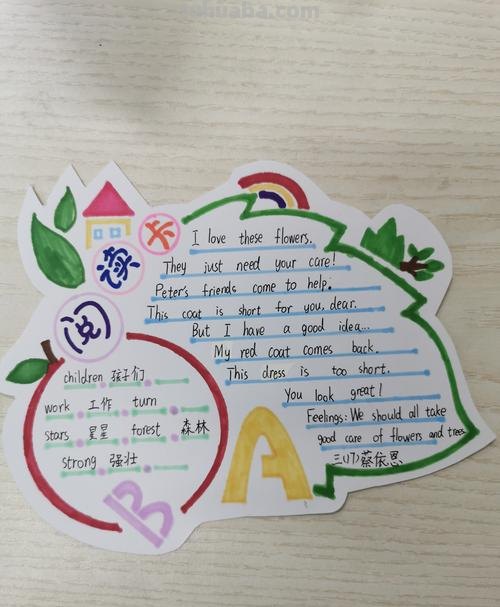 阅读卡
I love these flowers.
They just need your care!
Peter's friends come to help.
This coat is short for you, dear.
But I have a good idea...
My red coat comes back.
This dress is too short.
You look great!
Feelings: We should all take
good care of flowers and trees
三(17)蔡依恩
children 孩子们
work 工作 turn
stars 星星 forest 森林
strong 强壮
B
A